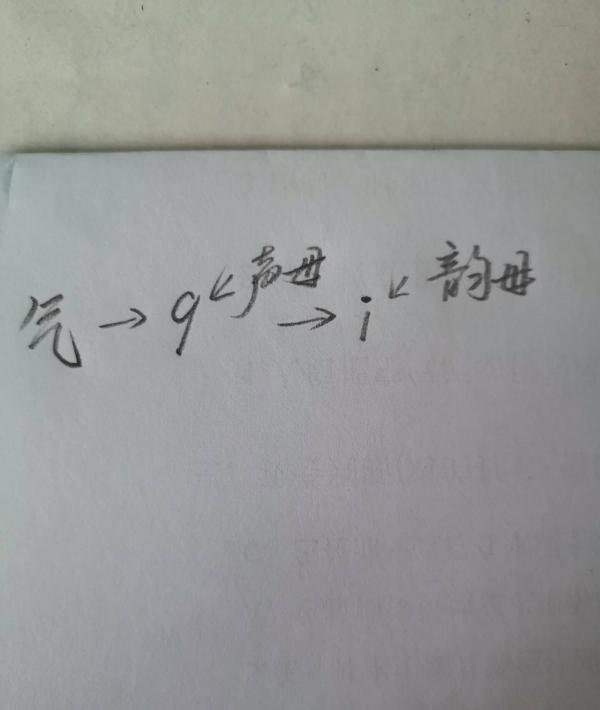 气→q↙声母→i↙韵母